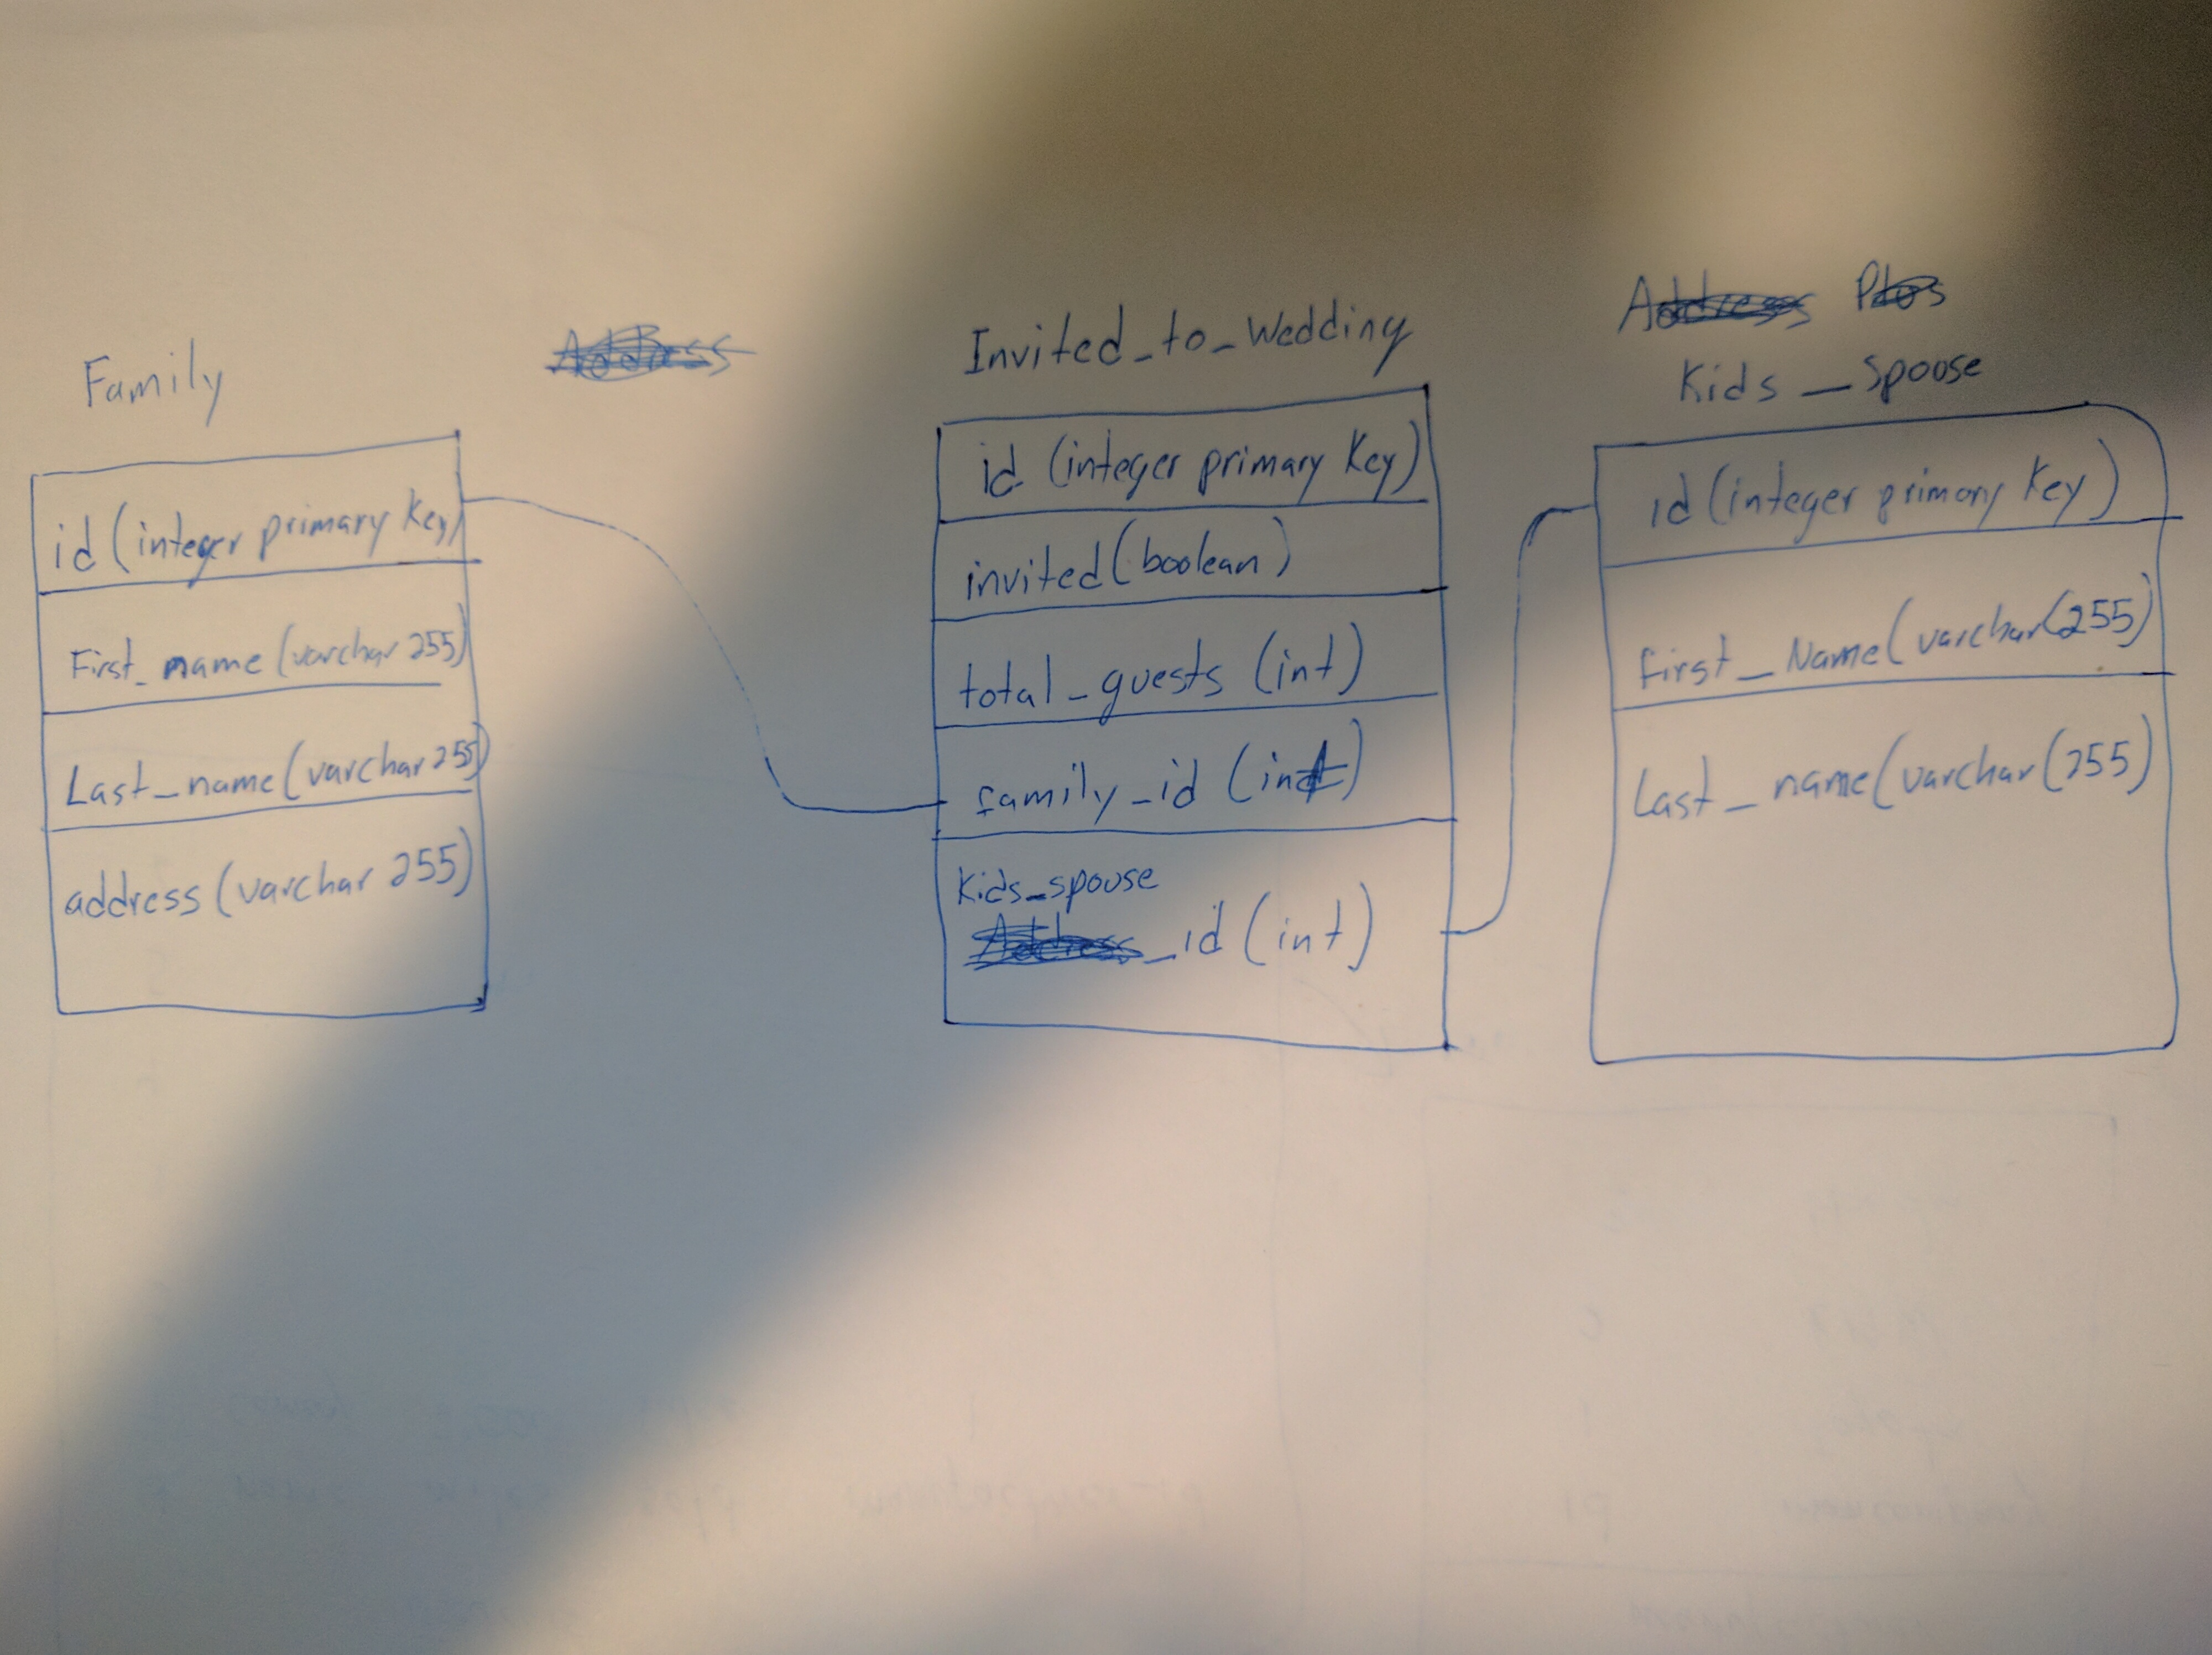 Family
id (integer primary Key)
First_name (varchar 255)
Last_name (varchar 255)
address (varchar 255)
Invited_to_Wedding
id (integer primary Key)
invited (boolean)
total_guests (int)
family_id (int)
Kids_spouse
_id (int)
Kids_Spouse
id (integer primary Key)
first_Name (varchar(255)
Last_name (varchar (255)